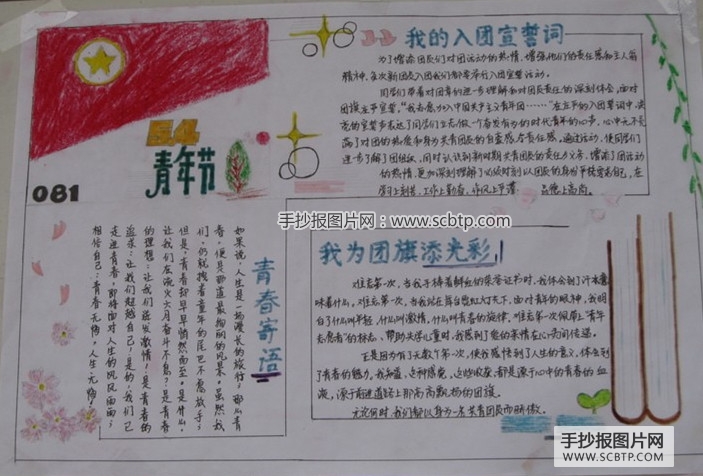 我的入团宣誓词
为了增添团员们对团活动的热情,增强他们的责任感和主人翁
精神,每次新团员入团我们都要举行入团宣誓活动。
同学们带着对团章的进一步理解和对团员责任的深刻体会,面对
团旗庄严宣誓,“我志愿加入中国共产主义青年团……”在庄严的入团誓词中,洪
亮的宣誓
满了对团的热爱和身为共青团员的自豪感与责任感。通过活动,使同学们
进一步了解了团组织,同时认识到新时期共青团员的责任与义务,增添了团活动
的热情,更加深刻理解了必须时刻以团员的身份严格要求自己,在
学习上刻苦,工作上勤奋,作风上严谨,品德上高尚。
54
青年节
081
手抄报图片网:www.scbtp.com
我为团旗添光彩
难忘第一次,当我手捧着鲜红的荣誉证书时,我体会到了汗水意
味着什么,难忘第一次,当我站在舞台霓虹灯光下,面对青年的眼神,我明
白了什么叫年轻,什么叫激情,什么叫青春的旋律。难忘第一次佩带上“青年
志愿者”的标志,帮助失学儿童时,我感到了爱的柔情在心间传递。
正是因为有了无数个第一次,使我感悟到了人生的意义,体会到
了青春的魅力。我知道,这种感觉,这些收获,都是源于心中的青春的血
液,源于前进道路上那高高飘扬的团旗。
无论何时,我们都以身为一名共青团员而骄傲。
青春寄语
如果说,人生是一场漫长的旅行,那么青
春,便是那道最绚丽的风景。虽然我
们,仍就拽着童年的尾巴不愿放手;
但是,青春却早早悄然而至。是什么,
让我们在流火六月奋斗不息?是青春
的理想;让我们迸发激情!是青春的
追求;让我们超越自己!是的,我们已
走进青春,即将面对人生的风风雨雨;
相信自己:青春无悔,人生无悔!
手抄报图片网
WWW.SCBTP.COM